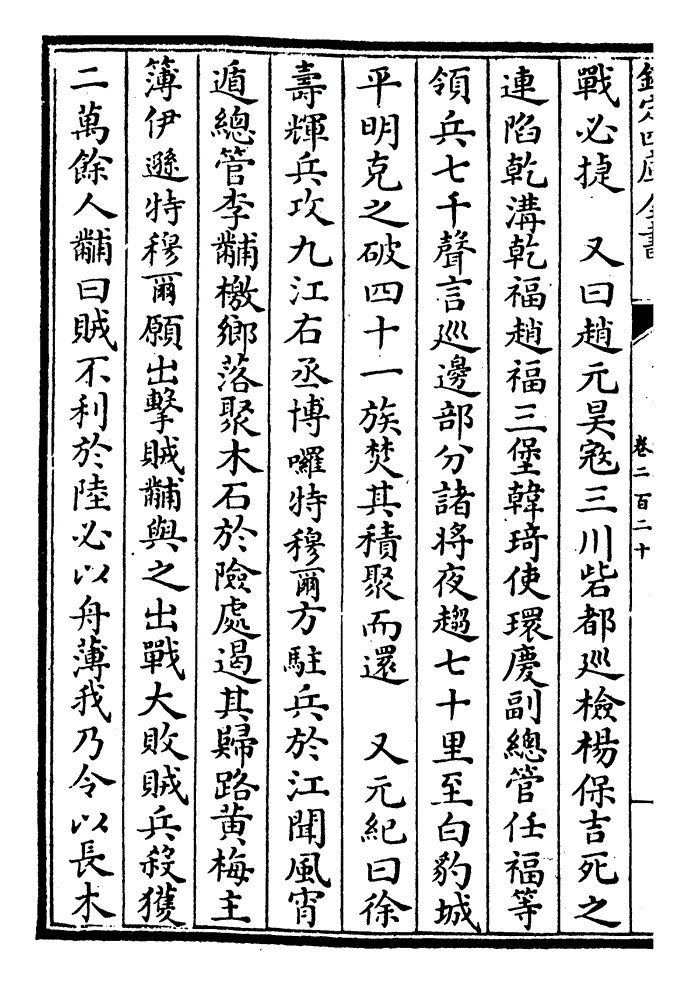 欽定四庫全書
卷二百二十
戰必捷　又曰趙元昊寇三川砦都巡檢楊保吉死之
連陷乾溝乾福趙福三堡韓琦使環慶副總管任福等
領兵七千聲言巡邊部分諸將夜趨七十里至白豹城
平明克之破四十一族焚其積聚而還　又元紀曰徐
壽輝兵攻九江右丞博囉特穆爾方駐兵於江聞風宵
遁總管李黼檄鄉落聚木石於險處遏其歸路黃梅主
簿伊遜特穆爾願出擊賊黼與之出戰大敗賊兵殺獲
二萬餘人黼曰賊不利於陸必以舟薄我乃令以長木